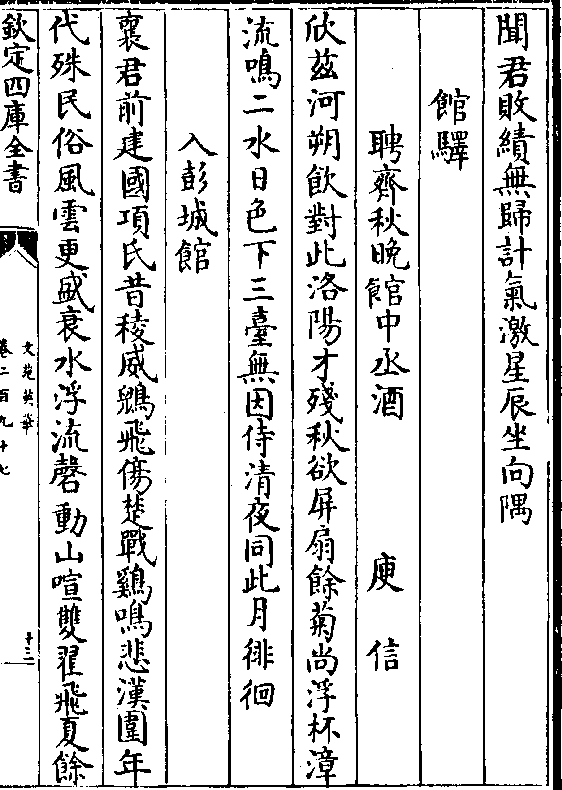 聞君敗績無歸計氣激星辰坐向隅
館驛
聘齊秋晚館中丞酒 庾信
欣茲河朔飲對此洛陽才殘秋欲屏扇餘菊尚浮杯漳
流鳴二水日色下三臺無因侍清夜同此月徘徊
入彭城館
襄君前建國項氏昔稜威鶂飛傷楚戰鷄鳴悲漢圍年
代殊民俗風雲更盛衰水浮流磬動山喧雙翟飛夏餘
欽定四庫全書
文苑英華
卷二百九十七
十三